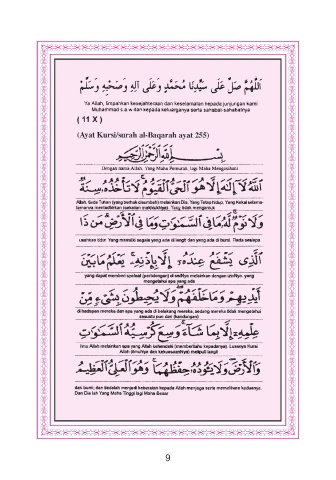 اللّٰهُمَّ صَلِّ عَلَى سَيِّدِنَا مُحَمَّدٍ وَعَلَى آلِهِ وَصَحْبِهِ وَسَلِّمْ
Ya Allah, limpahkan kesejahteraan dan keselamatan kepada junjungan kami
Muhammad s.a.w dan kepada keluarganya serta sahabat-sahabatnya
( 11 X )
(Ayat Kursi/surah al-Baqarah ayat 255)
بِسْمِ اللَّهِ الرَّحْمَٰنِ الرَّحِيمِ
Dengan nama Allah, Yang Maha Pemurah, lagi Maha Mengasihani
اللَّهُ لَا إِلَٰهَ إِلَّا هُوَ الْحَيُّ الْقَيُّومُ لَا تَأْخُذُهُ سِنَةٌ
Allah, tiada Tuhan (yang berhak disembah) melainkan Dia, Yang Tetap hidup, Yang Kekal selama-
lamanya mentadbirkan (sekalian makhlukNya). Yang tidak mengantuk
وَلَا نَوْمٌ لَهُ مَا فِي السَّمَاوَاتِ وَمَا فِي الْأَرْضِ مَنْ ذَا
usahkan tidur. Yang memiliki segala yang ada di langit dan yang ada di bumi. Tiada sesiapa
الَّذِي يَشْفَعُ عِنْدَهُ إِلَّا بِإِذْنِهِ يَعْلَمُ مَا بَيْنَ
yang dapat memberi syafaat (pertolongan) di sisiNya melainkan dengan izinNya. yang
mengetahui apa yang ada
أَيْدِيهِمْ وَمَا خَلْفَهُمْ وَلَا يُحِيطُونَ بِشَيْءٍ مِنْ
di hadapan mereka dan apa yang ada di belakang mereka, sedang mereka tidak mengetahui
sesuatu pun dari (kandungan)
عِلْمِهِ إِلَّا بِمَا شَاءَ وَسِعَ كُرْسِيُّهُ السَّمَاوَاتِ
Ilmu Allah melainkan apa yang Allah kehendaki (memberitahu kepadanya). Luasnya Kursi
Allah (IlmuNya dan kekuasaanNya) meliputi langit
وَالْأَرْضَ وَلَا يَئُودُهُ حِفْظُهُمَا وَهُوَ الْعَلِيُّ الْعَظِيمُ
dan bumi, dan tiadalah menjadi keberatan kepada Allah menjaga serta memelihara keduanya.
Dan Dia lah Yang Maha Tinggi lagi Maha Besar
9